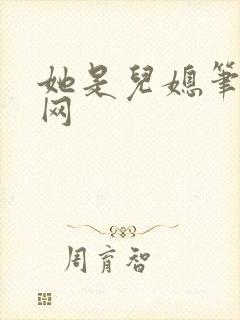 她是兒媳筆
网
周育智